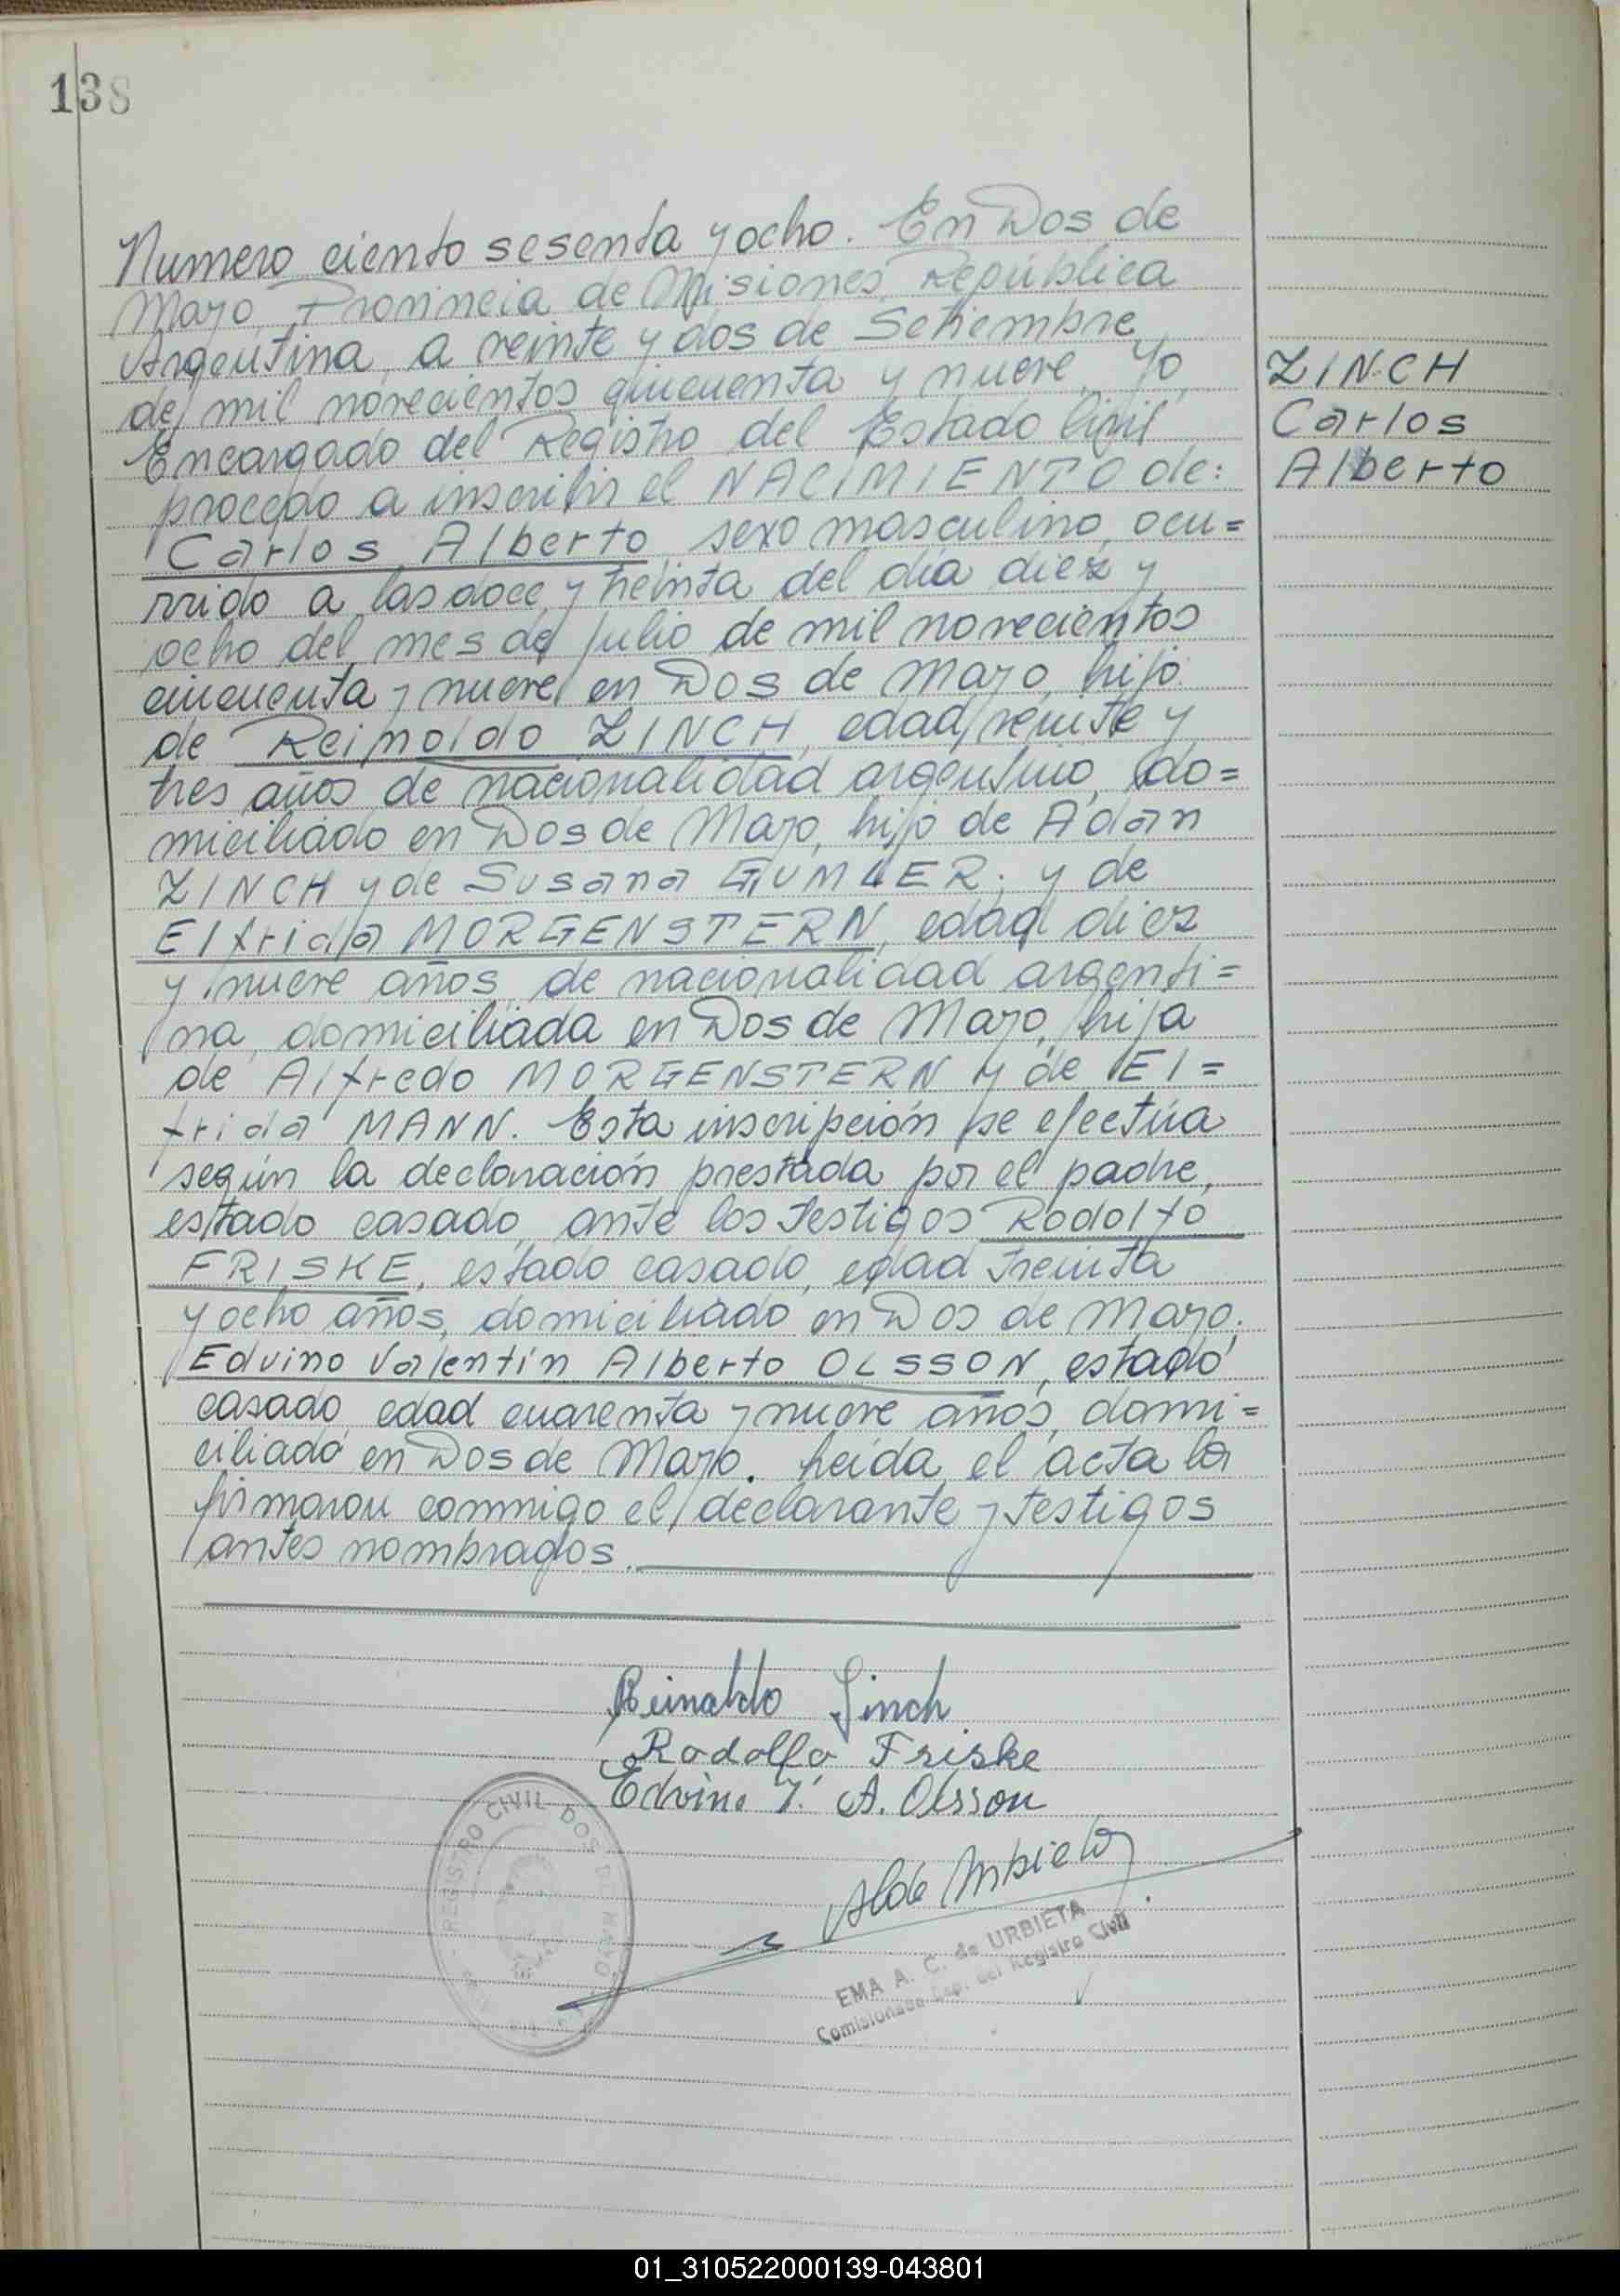 138
Numero ciento sesenta y ocho. En Dos de
Mayo, Provincia de Misiones, República
Argentina, a veinte y dos de Setiembre
de mil novecientos cincuenta y nueve, Yo,
Encargado del Registro del Estado Civil
procedo a inscribir el NACIMIENTO de:
Carlos Alberto, sexo masculino, ocu=
rrido a las doce y treinta del día diez y
ocho del mes de Julio de mil novecientos
cincuenta y nueve, en Dos de Mayo, hijo
de Reinoldo ZINCH, edad veinte y
tres años de nacionalidad argentino, do=
miciliado en Dos de Mayo, hijo de Adán
ZINCH y de Susana GUMLER; y de
Elfrida MORGENSTERN, edad diez
y nueve años, de nacionalidad argenti=
na, domiciliada en Dos de Mayo, hija
de Alfredo MORGENSTERN y de El=
frida MANN. Esta inscripción se efectúa
según la declaración prestada por el padre,
estado casado, ante los testigos Rodolfo
FRISKE, estado casado, edad treinta
y ocho años, domiciliado en Dos de Mayo.
Edvino Valentín Alberto OLSSON, estado
casado, edad cuarenta y nueve años, domi=
ciliado en Dos de Mayo. Leída el acta la
firmaron conmigo el declarante y testigos
antes nombrados.
ZINCH
Carlos
Alberto
Reinaldo Sinch
Rodolfo Friske
Edvino V. A. Olsson
REGISTRO CIVIL DOS DE MAYO
EMA A. C. de URBIETA
Comisionada Esp. del Registro Civil
01_310522000139-043801